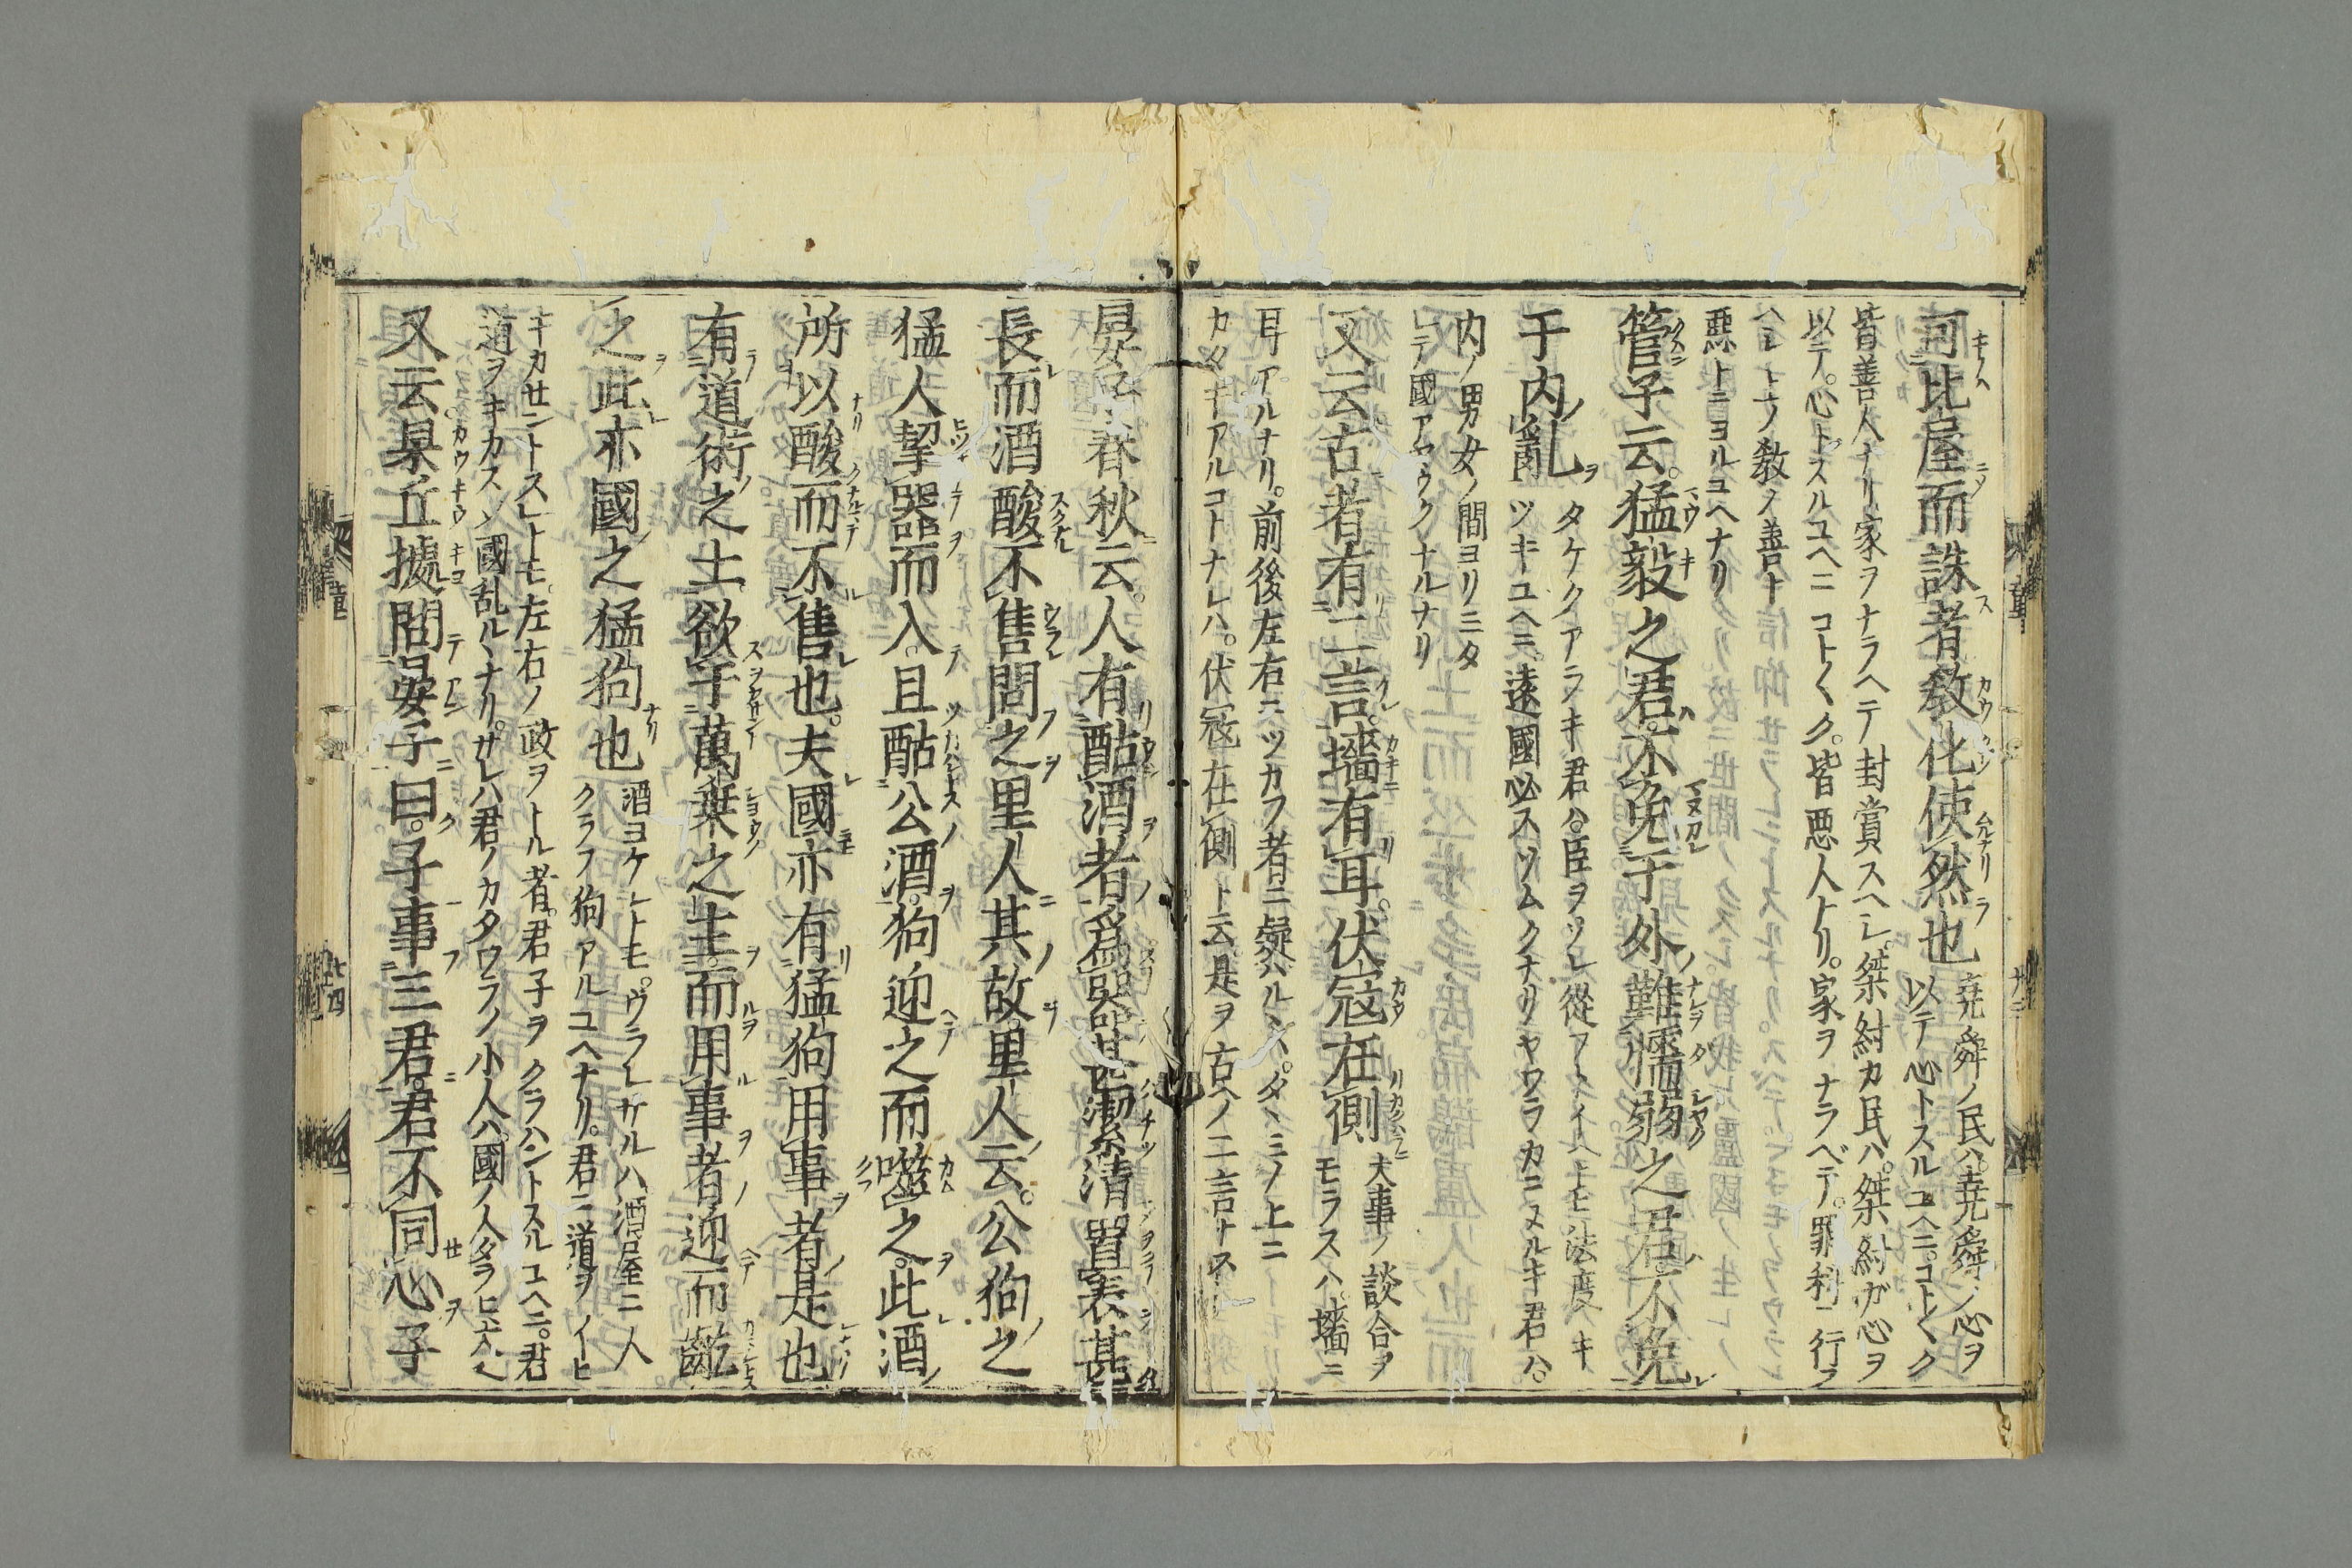 可比屋而誅者教化使然也
堯舜ノ民ハ堯舜ノ心ヲ
以テ心トスルユヘニコト〱ク
皆善人ナリ家ヲナラヘテ封賞スヘシ桀紂カ民ハ桀紂ガ心ヲ
以テ心トスルユヘニコト〱ク皆悪人トナリ家ヲナラベテ罪科ニ行フ
ヘシトナリ教ノ善ト
悪トニヨルユヘナリ
管子云猛毅之君不免于外難懦弱之君不免
于内亂
タケクアラキ君ハ臣ヲソレ從フトイヘトモ法度
ツキユヘニ遠國必スソムクナリヤワラカニヌルキ君ハ
内ノ男女ノ間ヨリミタ
レテ國アヤウクナルナリ
又云古者有二言墻有耳伏寇在側
大事ノ談合ヲ
モラスハ墻ニ
耳アルナリ前後左右ニツカフ者ニ疑ハルヽハタヽミノ上ニ
カタキアルコトナレハ伏寇在側ト云是ヲ古ヘノ二言ナス
晏子春秋云人有酤酒者爲器甚潔清置表甚
長而酒酸不售問之里人其故里人云公狗之
猛人挈器而入且酤公酒狗迎之而噬之此酒
所以酸而不售也夫國亦有猛狗用事者是也
有道術之士欲干萬乗之主而用事者迎而齕
之此亦國之猛狗也
酒ヨケレトモウラレサルハ酒屋ニ人
クラフ狗アルユヘナリ君ニ道ヲイヒ
キカセントストモ左右ノ政ヲトル者君子ヲクラハントスルユヘニ君
道ヲキカスノ國乱ルヽナリサレハ君ノカタワラノ小人ハ國ノ人クラヒ犬ヘ
又云梟丘據問晏子曰子事三君君不同心子